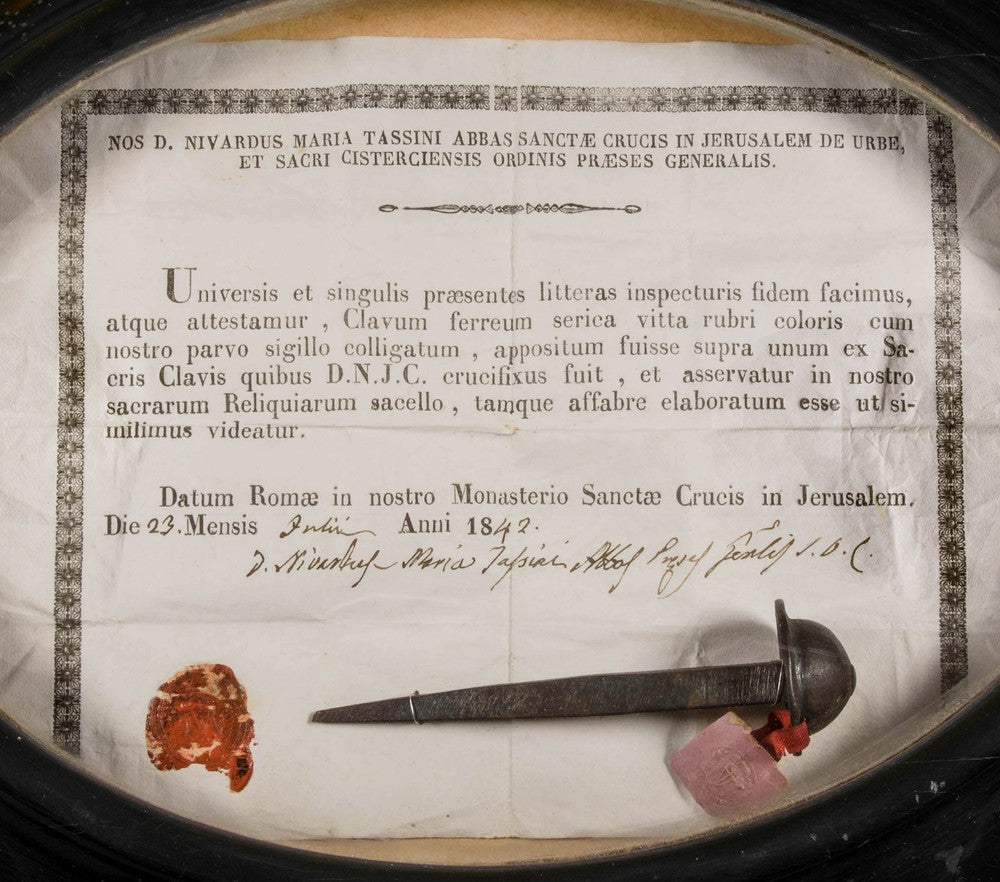 NOS D. NIVARDUS MARIA TASSINI ABBAS SANCTÆ CRUCIS IN JERUSALEM DE URBE,
ET SACRI CISTERCIENSIS ORDINIS PRÆSES GENERALIS.
Universis et singulis præsentes litteras inspecturis fidem facimus,
atque attestamur , Clavum ferreum serica vitta rubri coloris cum
nostro parvo sigillo colligatum , appositum fuisse supra unum ex Sa-
cris Clavis quibus D.N.J.C. crucifixus fuit , et asservatur in nostro
sacrarum Reliquiarum sacello , tamque affabre elaboratum esse ut si-
milimus videatur.
Datum Romæ in nostro Monasterio Sanctæ Crucis in Jerusalem.
Die 23. Mensis Julii Anni 1842.
D. Nivardus Maria Tassini Abbas